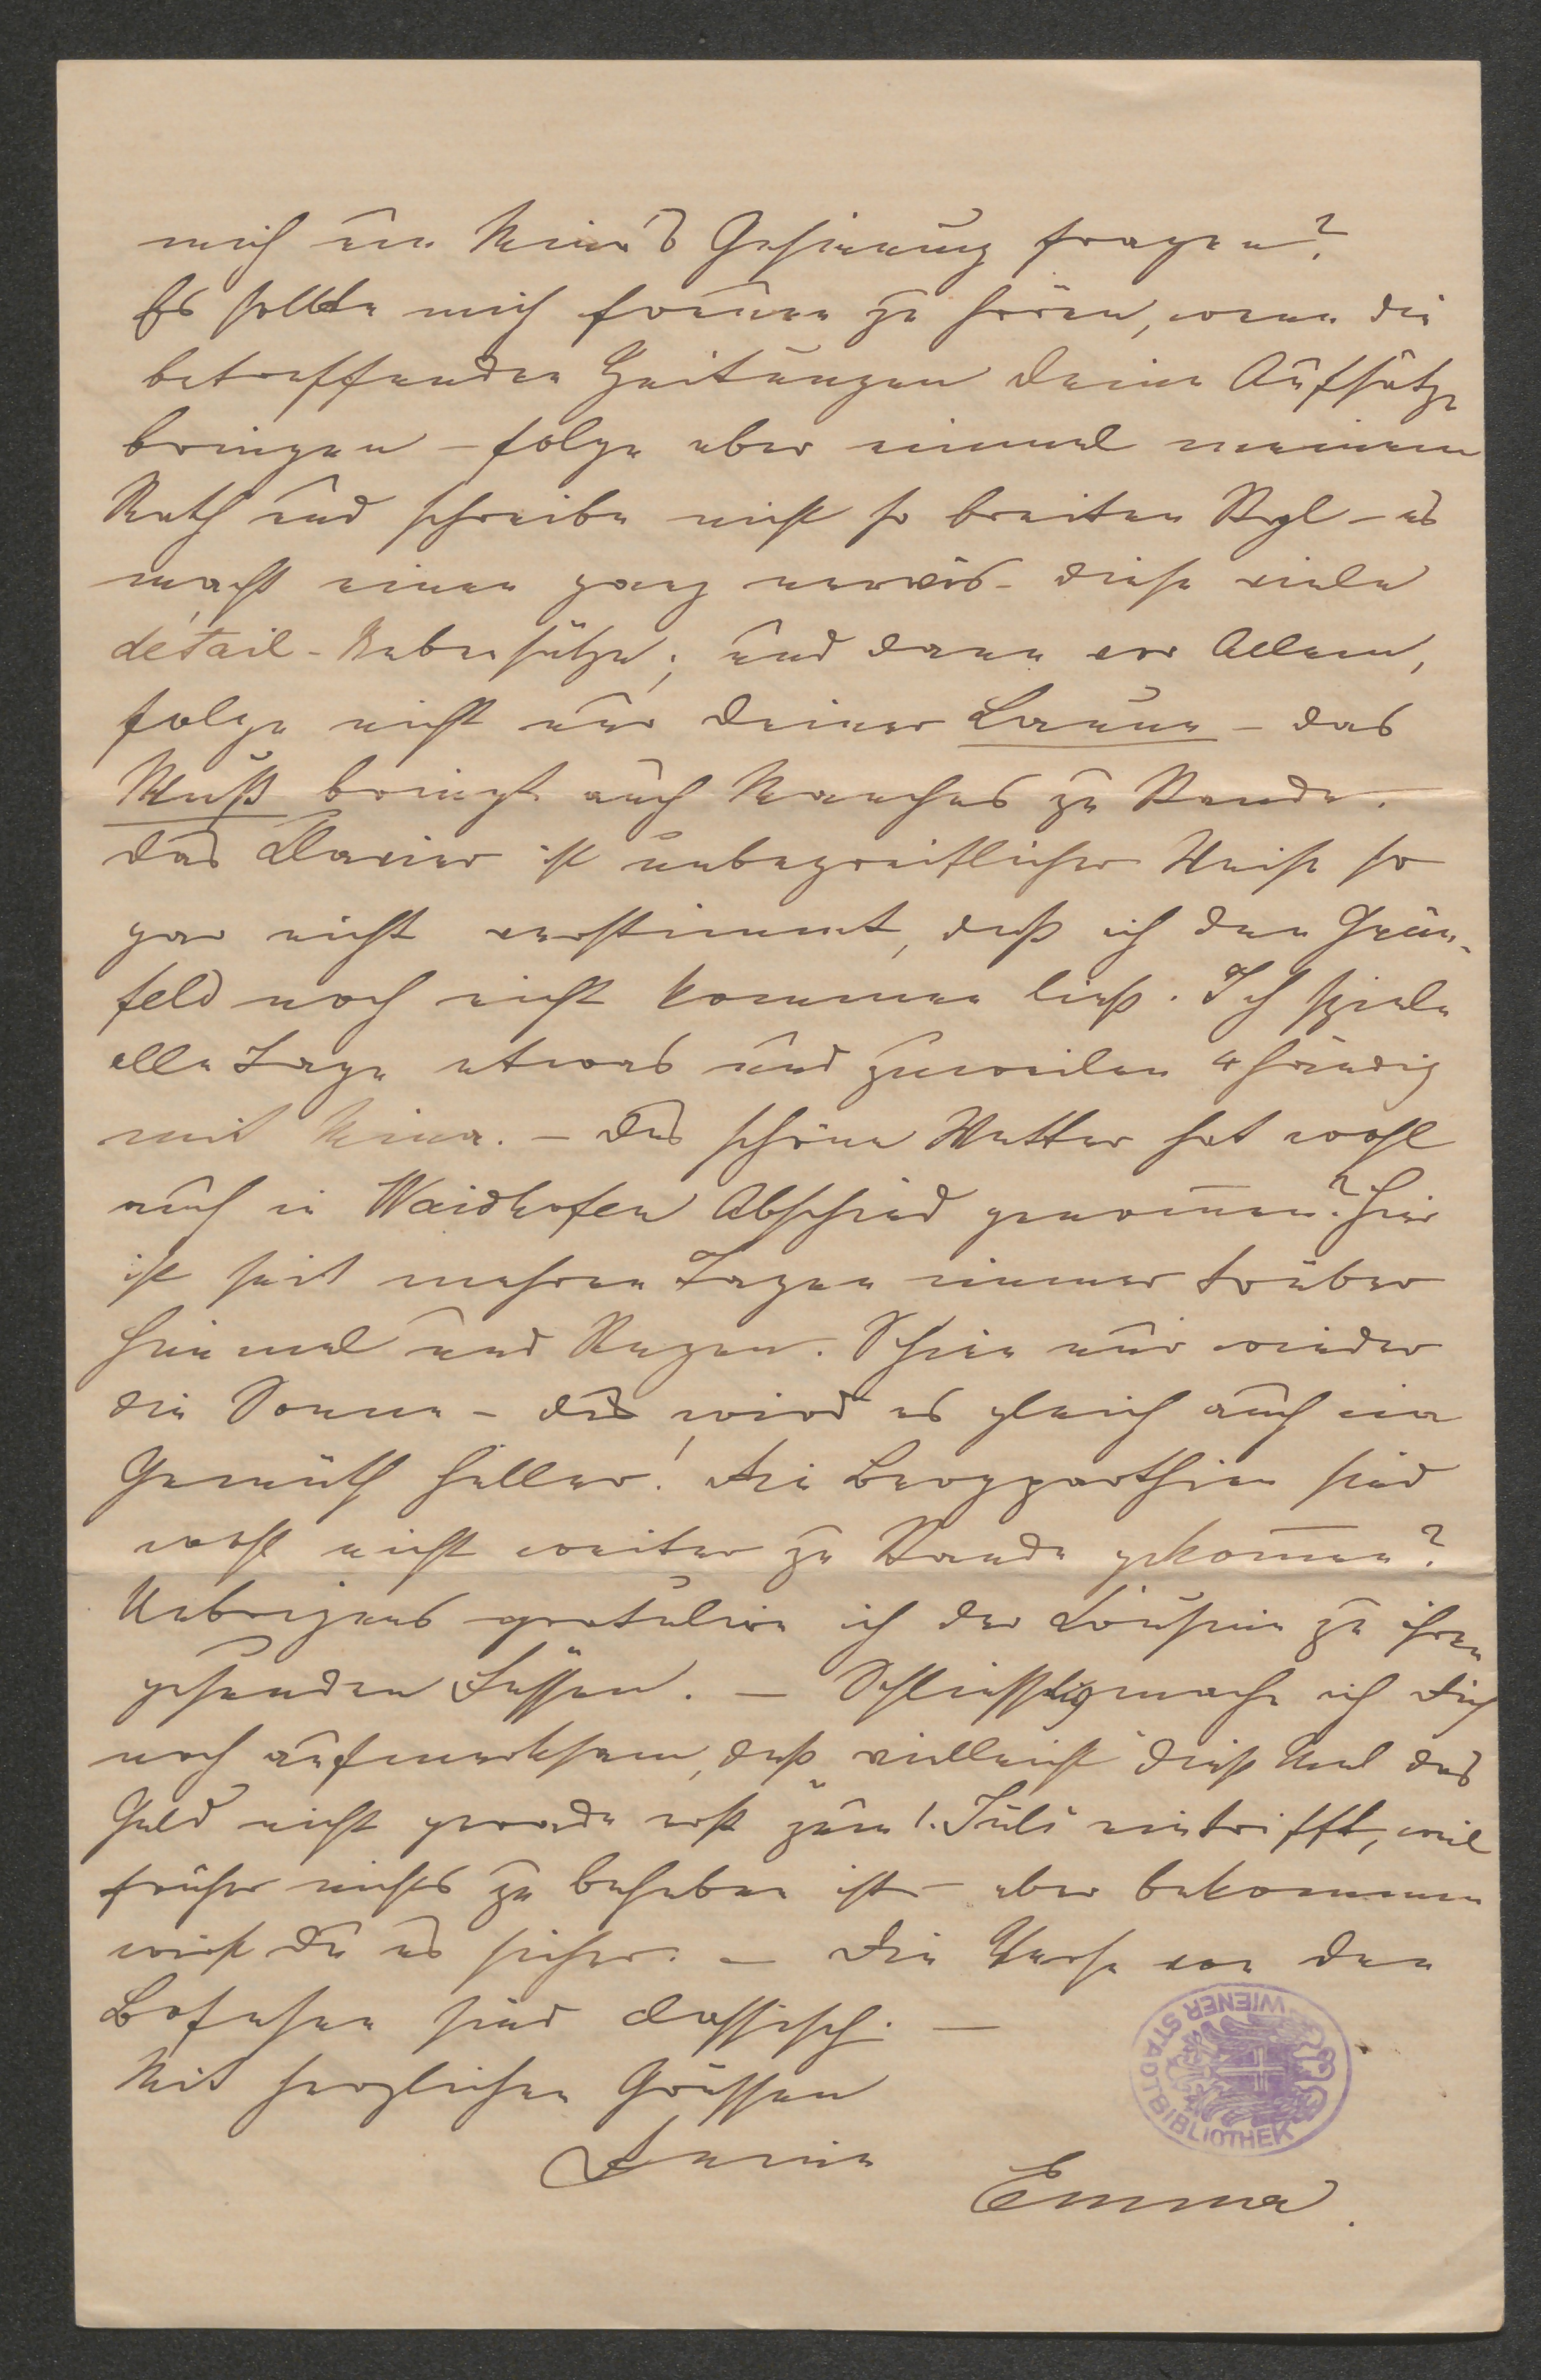 mich um Mina's Gesinnung fragen?
Es sollte mich freuen zu hören, wenn die
betreffenden Zeitungen Deine Aufsätze
bringen – folge aber einmal meinem
Rath und schreibe nicht so breiten Styl – es
macht einen ganz nervös – diese viele
détail-Nebensätze; und dann vor Allem,
folge nicht nur Deiner Laune – das
Muß bringt auch Manches zu Stande.
Das Clavier ist unbegreiflicher Weise so
gar nicht verstimmt, daß ich den Grün-
feld noch nicht kommen ließ. Ich spiele
alle Tage etwas und zuweilen 4 händig
mit Mina. – Das schöne Wetter hat wohl
auch in Waidhofen Abschied genommen? Hier
ist seit mehren Tagen immer trüber
Himmel und Regen. Schien nur wieder
die Sonne – da wird es gleich auch im
Gemüth heller! Die Bergparthien sind
wohl nicht weiter zu Stande gekommen?
Uebrigens gratulire ich der Cousine zu ihren
gesunden Füssen. – Schliesslig mache ich Dich
noch aufmerksam, daß vielleicht dieß Mal das
Geld nicht gerade erst zum 1. Juli eintrifft, weil
früher nichts zu beheben ist – aber bekommen
wirst Du es sicher. – Die Verse von den
sind classisch. –
Mit herzlichen Grüssen
Deine
Emma.
WIENER STADTBIBLIOTHEK